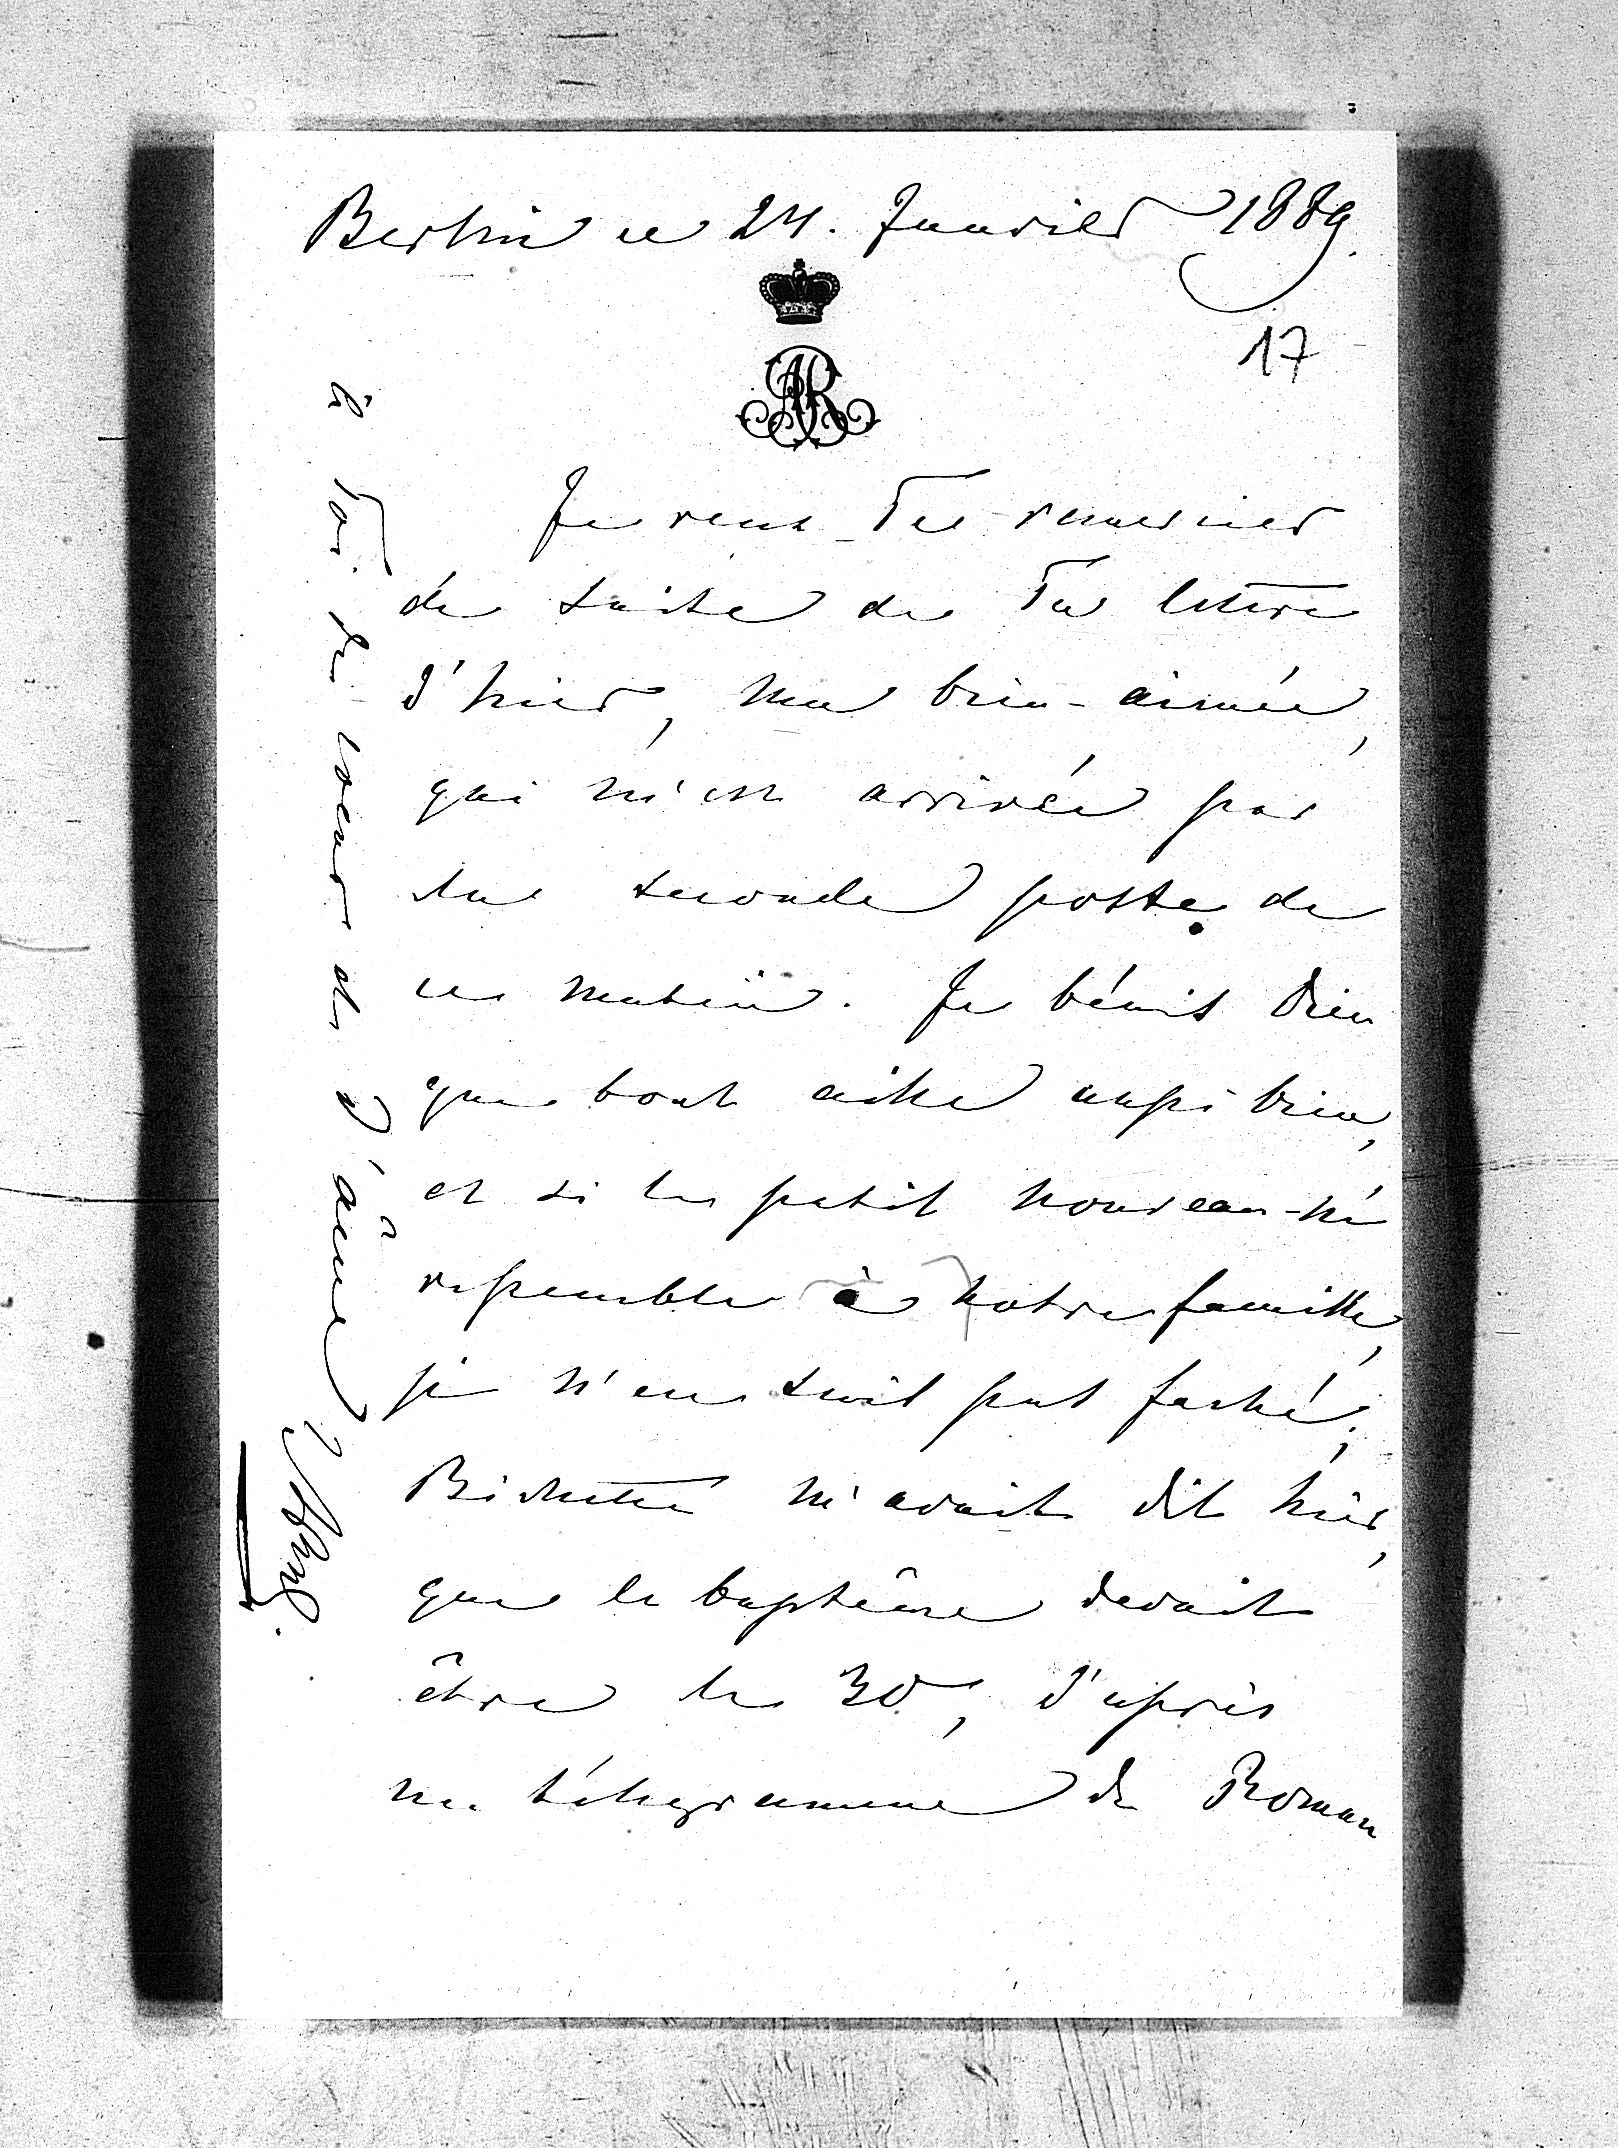 Berlin ce 24. Janvier 1889.
17
AR
Je veux Te remercier
de suite de Ta lettre
d'hier, ma bien-aimée,
qui m'est arrivée par
la seconde poste de
ce matin. Je bénis Dieu
que tout aille aussi bien,
et si le petit nouveau-né
ressemble à notre famille,
je n'en suis pas faché;
m'avait dit hier,
que le baptême devait
être le 30, d'après
un télegramme de Roman
à Toi de coeur et d'âme